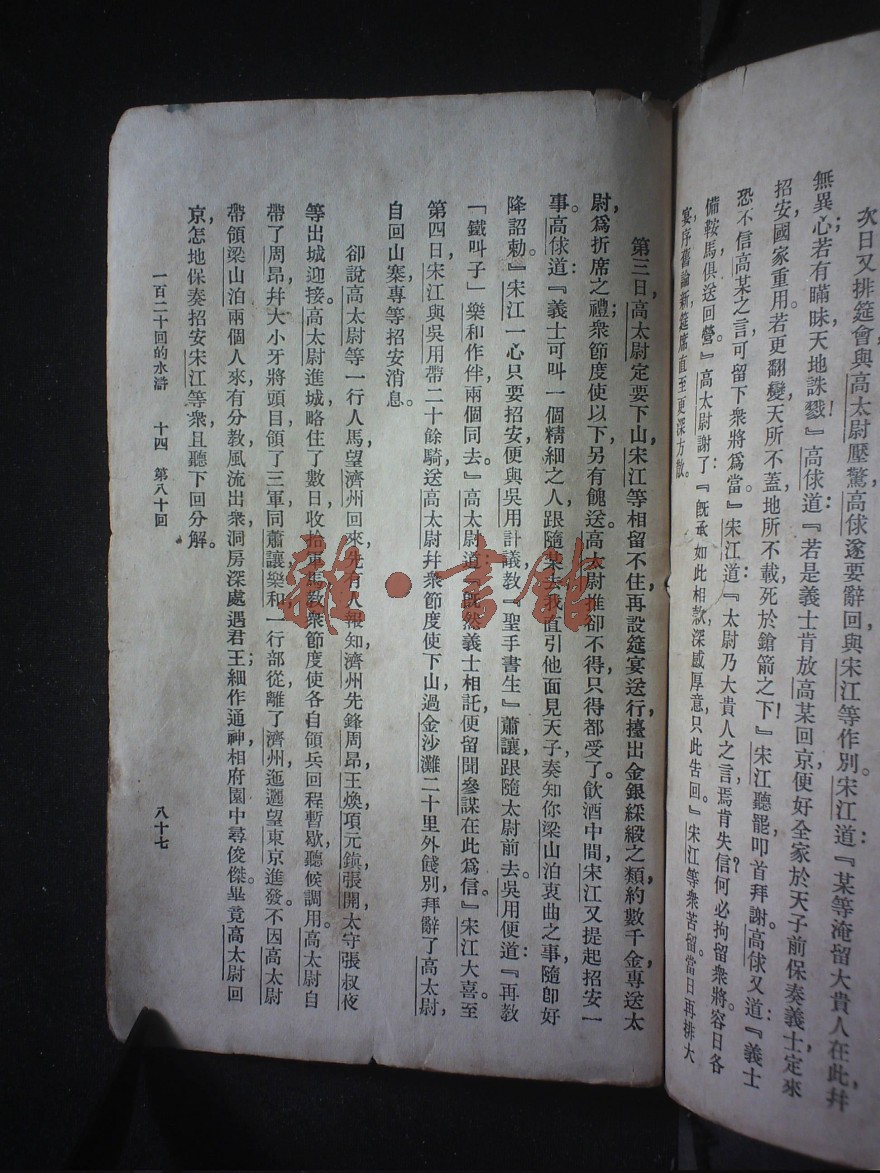 次日又排筵會，與高太尉壓驚。高俅遂要辭回，與宋江等作別。宋江道：『某等淹留大貴人在此，幷
無異心；若有瞞昧，天地誅戮！』高俅道：『若是義士肯放高某回京，便好全家於天子前保奏義士，定來
招安，國家重用。若更翻變，天所不蓋，地所不載，死於鎗箭之下！』宋江聽罷，叩首拜謝。高俅又道：『義士
恐不信高某之言，可留下衆將爲當。』宋江道：『太尉乃大貴人之言，焉肯失信？何必拘留衆將。容日各
備鞍馬，俱送回營。』高太尉謝了：『旣承如此相款，深感厚意。只此吿回。』宋江等衆苦留。當日再排大
宴，序舊論新，筵席直至更深方散。
第三日，高太尉定要下山，宋江等相留不住，再設筵宴送行，擡出金銀綵緞之類，約數千金，專送太
尉，爲折席之禮；衆節度使以下，另有餽送。高太尉推卻不得，只得都受了。飮酒中間，宋江又提起招安一
事。高俅道：『義士可叫一個精細之人，跟隨某去，我直引他面見天子，奏知你梁山泊衷曲之事，隨卽好
降詔勅。』宋江一心只要招安，便與吳用計議，敎『聖手書生』蕭讓跟隨太尉前去。吳用便道：『再敎
「鐵叫子」樂和作伴，兩個同去。』高太尉道：『旣然義士相託，便留聞參謀在此爲信。』宋江大喜。至
第四日，宋江與吳用帶二十餘騎，送高太尉幷衆節度使下山，過金沙灘二十里外餞別，拜辭了高太尉，
自回山寨，專等招安消息。
卻說高太尉等一行人馬，望濟州回來，先有人報知，濟州先鋒周昂、王煥、項元鎭、張開，太守張叔夜
等出城迎接。高太尉進城，略住了數日，收拾軍馬，敎衆節度使各自領兵回程暫歇，聽候調用。高太尉自
帶了周昂幷大小牙將頭目，領了三軍，同蕭讓、樂和一行部從，離了濟州，迤邐望東京進發。不因高太尉
帶領梁山泊兩個人來，有分敎：風流出衆，洞房深處遇君王；細作通神，相府園中尋俊傑。畢竟高太尉回
京，怎地保奏招安宋江等衆，且聽下回分解。
一百二十回的水滸　十四　第八十回　八十七
雜·書館